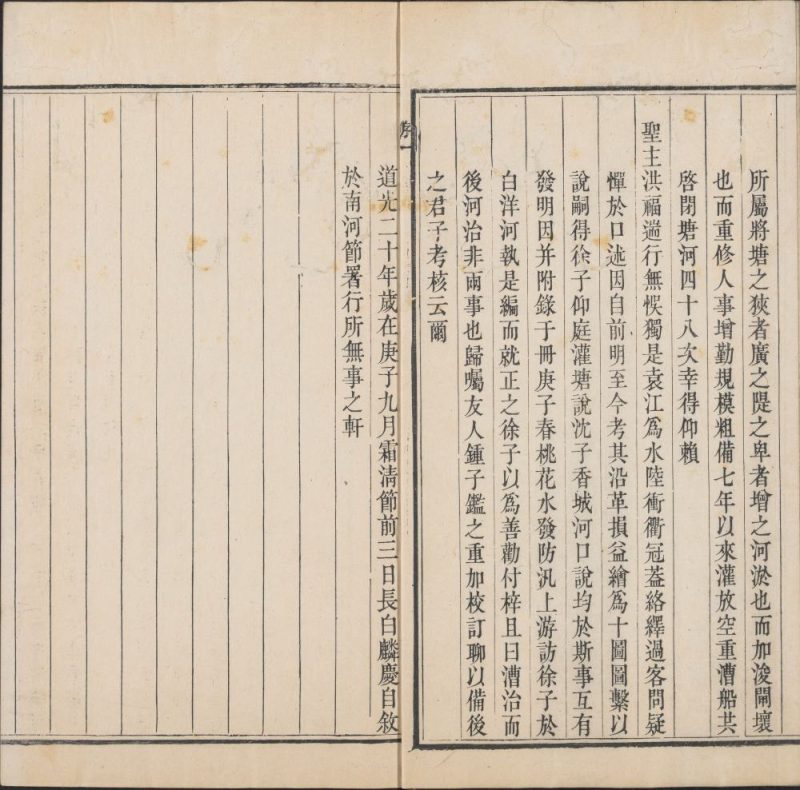 所屬將塘之狹者廣之隄之卑者增之河淤也而加浚閘壞
也而重修人事增勤規模粗備七年以來灌放空重漕船共
啓閉塘河四十八次幸得仰賴
聖主洪福遄行無悞獨是袁江爲水陸衝衢冠葢絡繹過客問疑
憚於口述因自前明至今考其沿革損益繪爲十圖圖繫以
說嗣得徐子仰庭灌塘說沈子香城河口說均於斯事互有
發明因并附錄于冊庚子春桃花水發防汛上游訪徐子於
白洋河執是編而就正之徐子以爲善勸付梓且曰漕治而
後河治非兩事也歸囑友人鍾子鑑之重加校訂聊以備後
之君子考核云爾
序一
道光二十年歲在庚子九月霜清節前三日長白麟慶自敘
於南河節署行所無事之軒